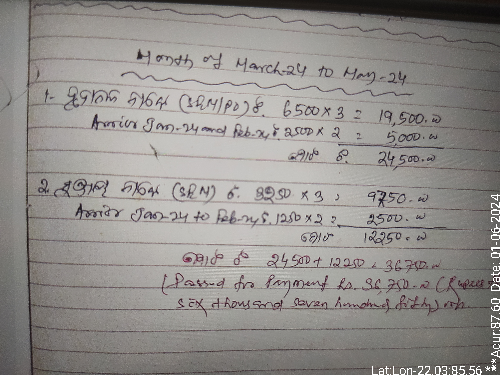 Month of March-24 to May-24
1- (SRM/PD) ଟ. 6500 x 3 = 19,500.00
Arrier Jan-24 and Feb-24, ଟ. 2500 x 2 = 5,000.00
ମୋଟ ଟ. 24,500.00
2. (SRM) ଟ. 3250 x 3 = 9750.00
Arrier Jan-24 to Feb-24, ଟ. 1250 x 2 = 2500.00
ମୋଟ 12250.00
ମୋଟ ଟ 24500 + 12250 = 36,750.00
(Passed for Payment Rs. 36,750.00 (Rupees
six thousand seven hundred fifty) only
Lat:Lon-22.03:85.56 **Acur:87.60 Date: 01-06-2024